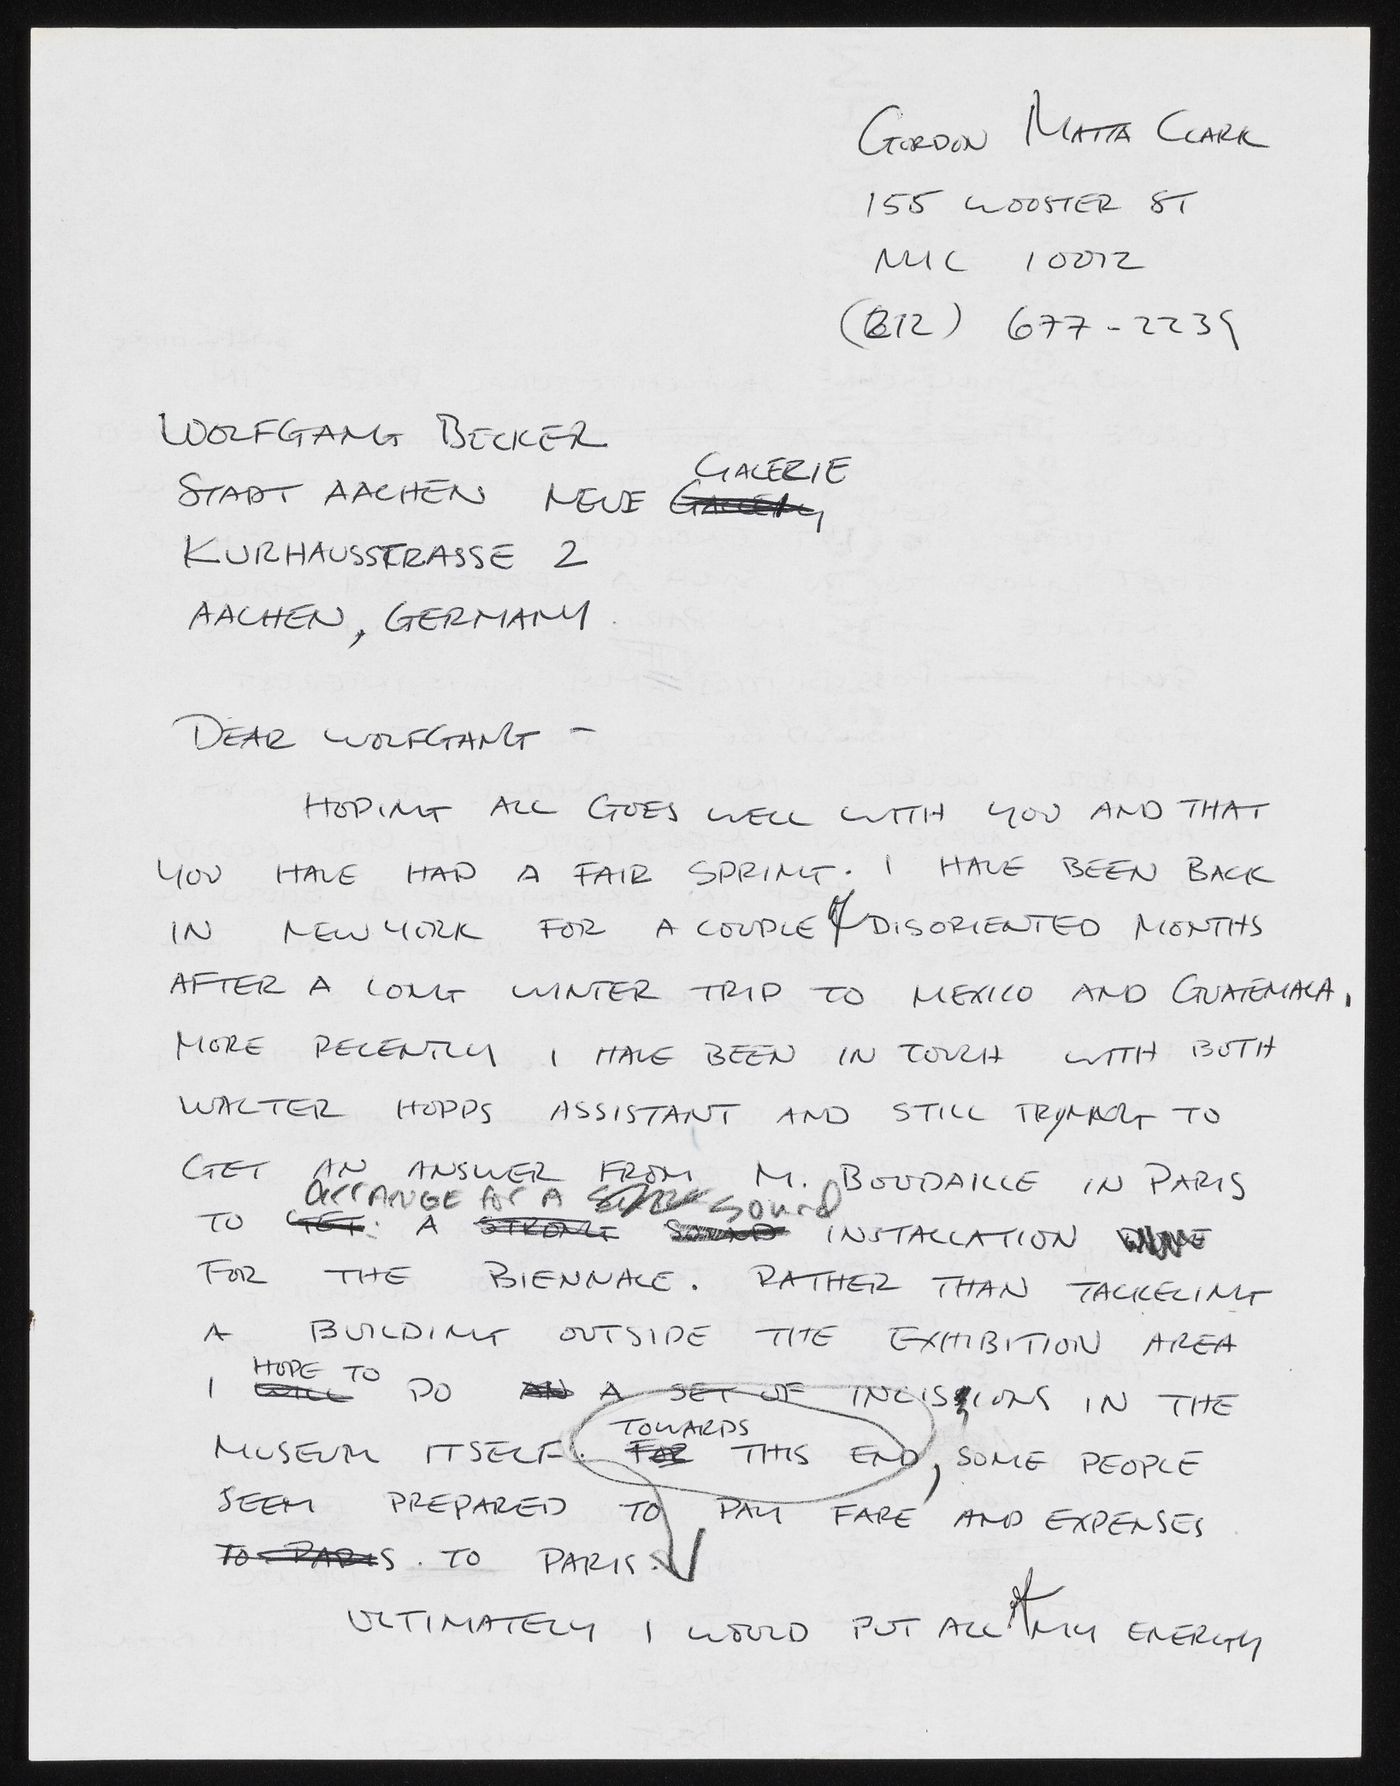 GORDON MATTA CLARK
155 WOOSTER ST
NYC 10012
(212) 677-2239
WOLFGANG BECKER
GALERIE
STADT AACHEN NEUE GALLERY
KURHAUSSTRASSE 2
AACHEN, GERMANY
DEAR WOLFGANG -
HOPING ALL GOES WELL WITH YOU AND THAT
YOU HAVE HAD A FAIR SPRING. I HAVE BEEN BACK
IN NEW YORK FOR A COUPLE of DISORIENTED MONTHS
AFTER A LONG WINTER TRIP TO MEXICO AND GUATEMALA.
MORE RECENTLY I HAVE BEEN IN TOUCH WITH BOTH
WALTER HOPPS ASSISTANT AND STILL TRYING TO
GET AN ANSWER FROM M. BOUDAILLE IN PARIS
ARRANGE for A sound
TO GET A STRONG SOUND INSTALLATION
FOR THE BIENNALE. RATHER THAN TACKELING
A BUILDING OUTSIDE THE EXHIBITION AREA
HOPE TO
I WILL DO AN A SET OF INCISIONS IN THE
TOWARDS
MUSEUM ITSELF. FOR THIS END, SOME PEOPLE
SEEM PREPARED TO PAY FARE AND EXPENSES
TO PARIS. TO PARIS.
ULTIMATELY I WOULD PUT ALL MY ENERGY